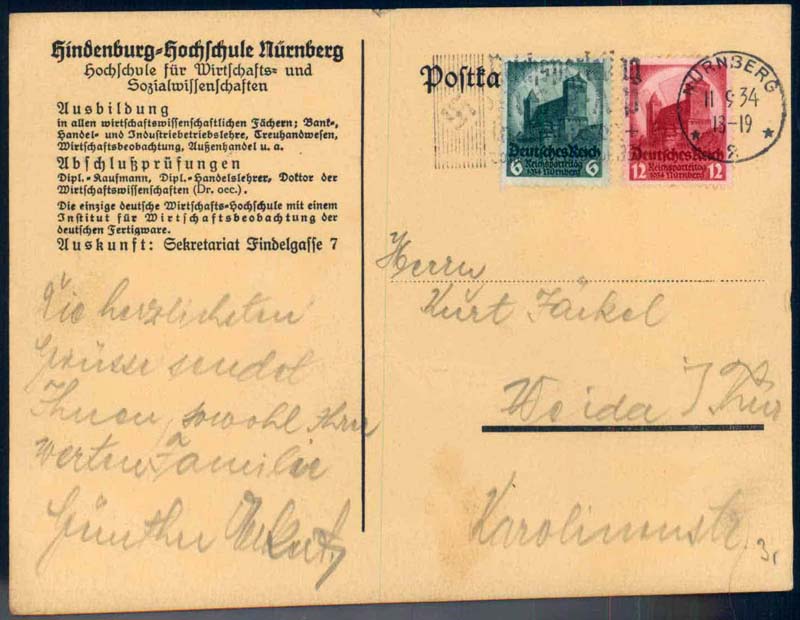 Hindenburg-Hochschule Nürnberg
Hochschule für Wirtschafts- und
Sozialwissenschaften
Ausbildung
in allen wirtschaftswissenschaftlichen Fächern; Bank-,
Handel- und Industriebetriebslehre, Treuhandwesen,
Wirtschaftsbeobachtung, Außenhandel u. a.
Abschlußprüfungen
Dipl.-Kaufmann, Dipl.-Handelslehrer, Doktor der
Wirtschaftswissenschaften (Dr. oec.).
Die einzige deutsche Wirtschafts-Hochschule mit einem
Institut für Wirtschaftsbeobachtung der
deutschen Fertigware.
Auskunft: Sekretariat Findelgasse 7
Die herzlichsten
Grüsse sendet
Ihnen, sowohl Ihrer
werten Familie
Günther
Postka
Deutsches Reich
Reichsparteitag
1934 Nürnberg
6 6
Deutsches Reich
Reichsparteitag
1934 Nürnberg
12 12
NÜRNBERG
11 9 34
18-19
* 2 *
Herrn
Kurt Jäckel
Weida i Thür
Karolinenstr.